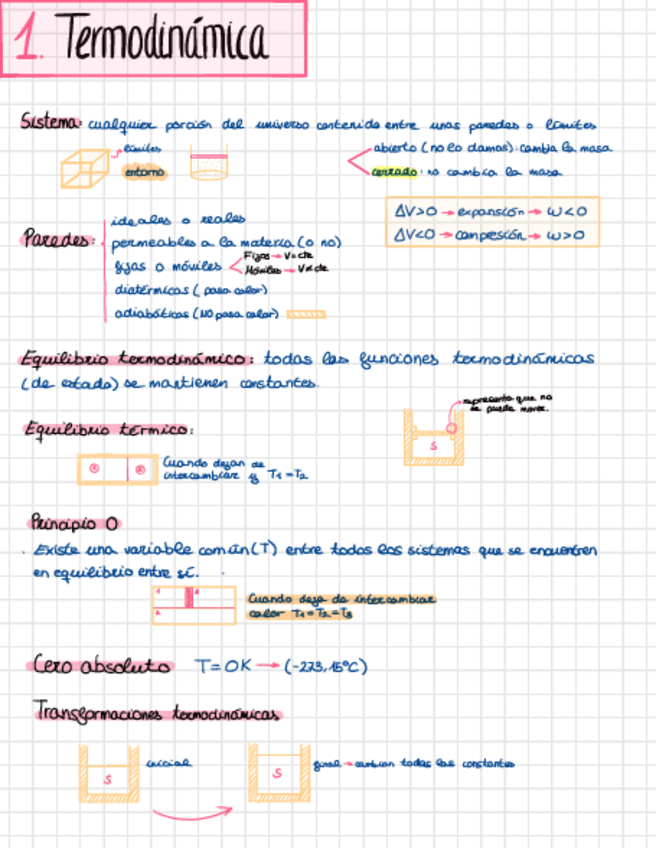 1. Termodinámica
Sistema: cualquier porción del universo contenida entre unas paredes o límites
límites
entorno
abierto (no lo damos): cambia la masa
cerrado: no cambia la masa
ΔV>0 → expansión → w<0
ΔV<0 → compresión → w>0
Paredes:
ideales o reales
permeables a la materia (o no)
fijas o móviles
Fijas → V=cte
Móviles → V≠cte
diatérmicas (pasa calor)
adiabáticas (NO pasa calor)
Equilibrio termodinámico: todas las funciones termodinámicas
(de estado) se mantienen constantes.
representa que no
se puede mover.
S
Equilibrio térmico:
1 2
Cuando dejan de
intercambiar y T₁=T₂
Principio 0
Existe una variable común (T) entre todos los sistemas que se encuentren
en equilibrio entre sí.
Cuando deja de intercambiar
calor T₁=T₂=T₃
Cero absoluto T=0K → (-273,15ºC)
Transformaciones termodinámicas
S
inicial
S
final → cambian todas las constantes